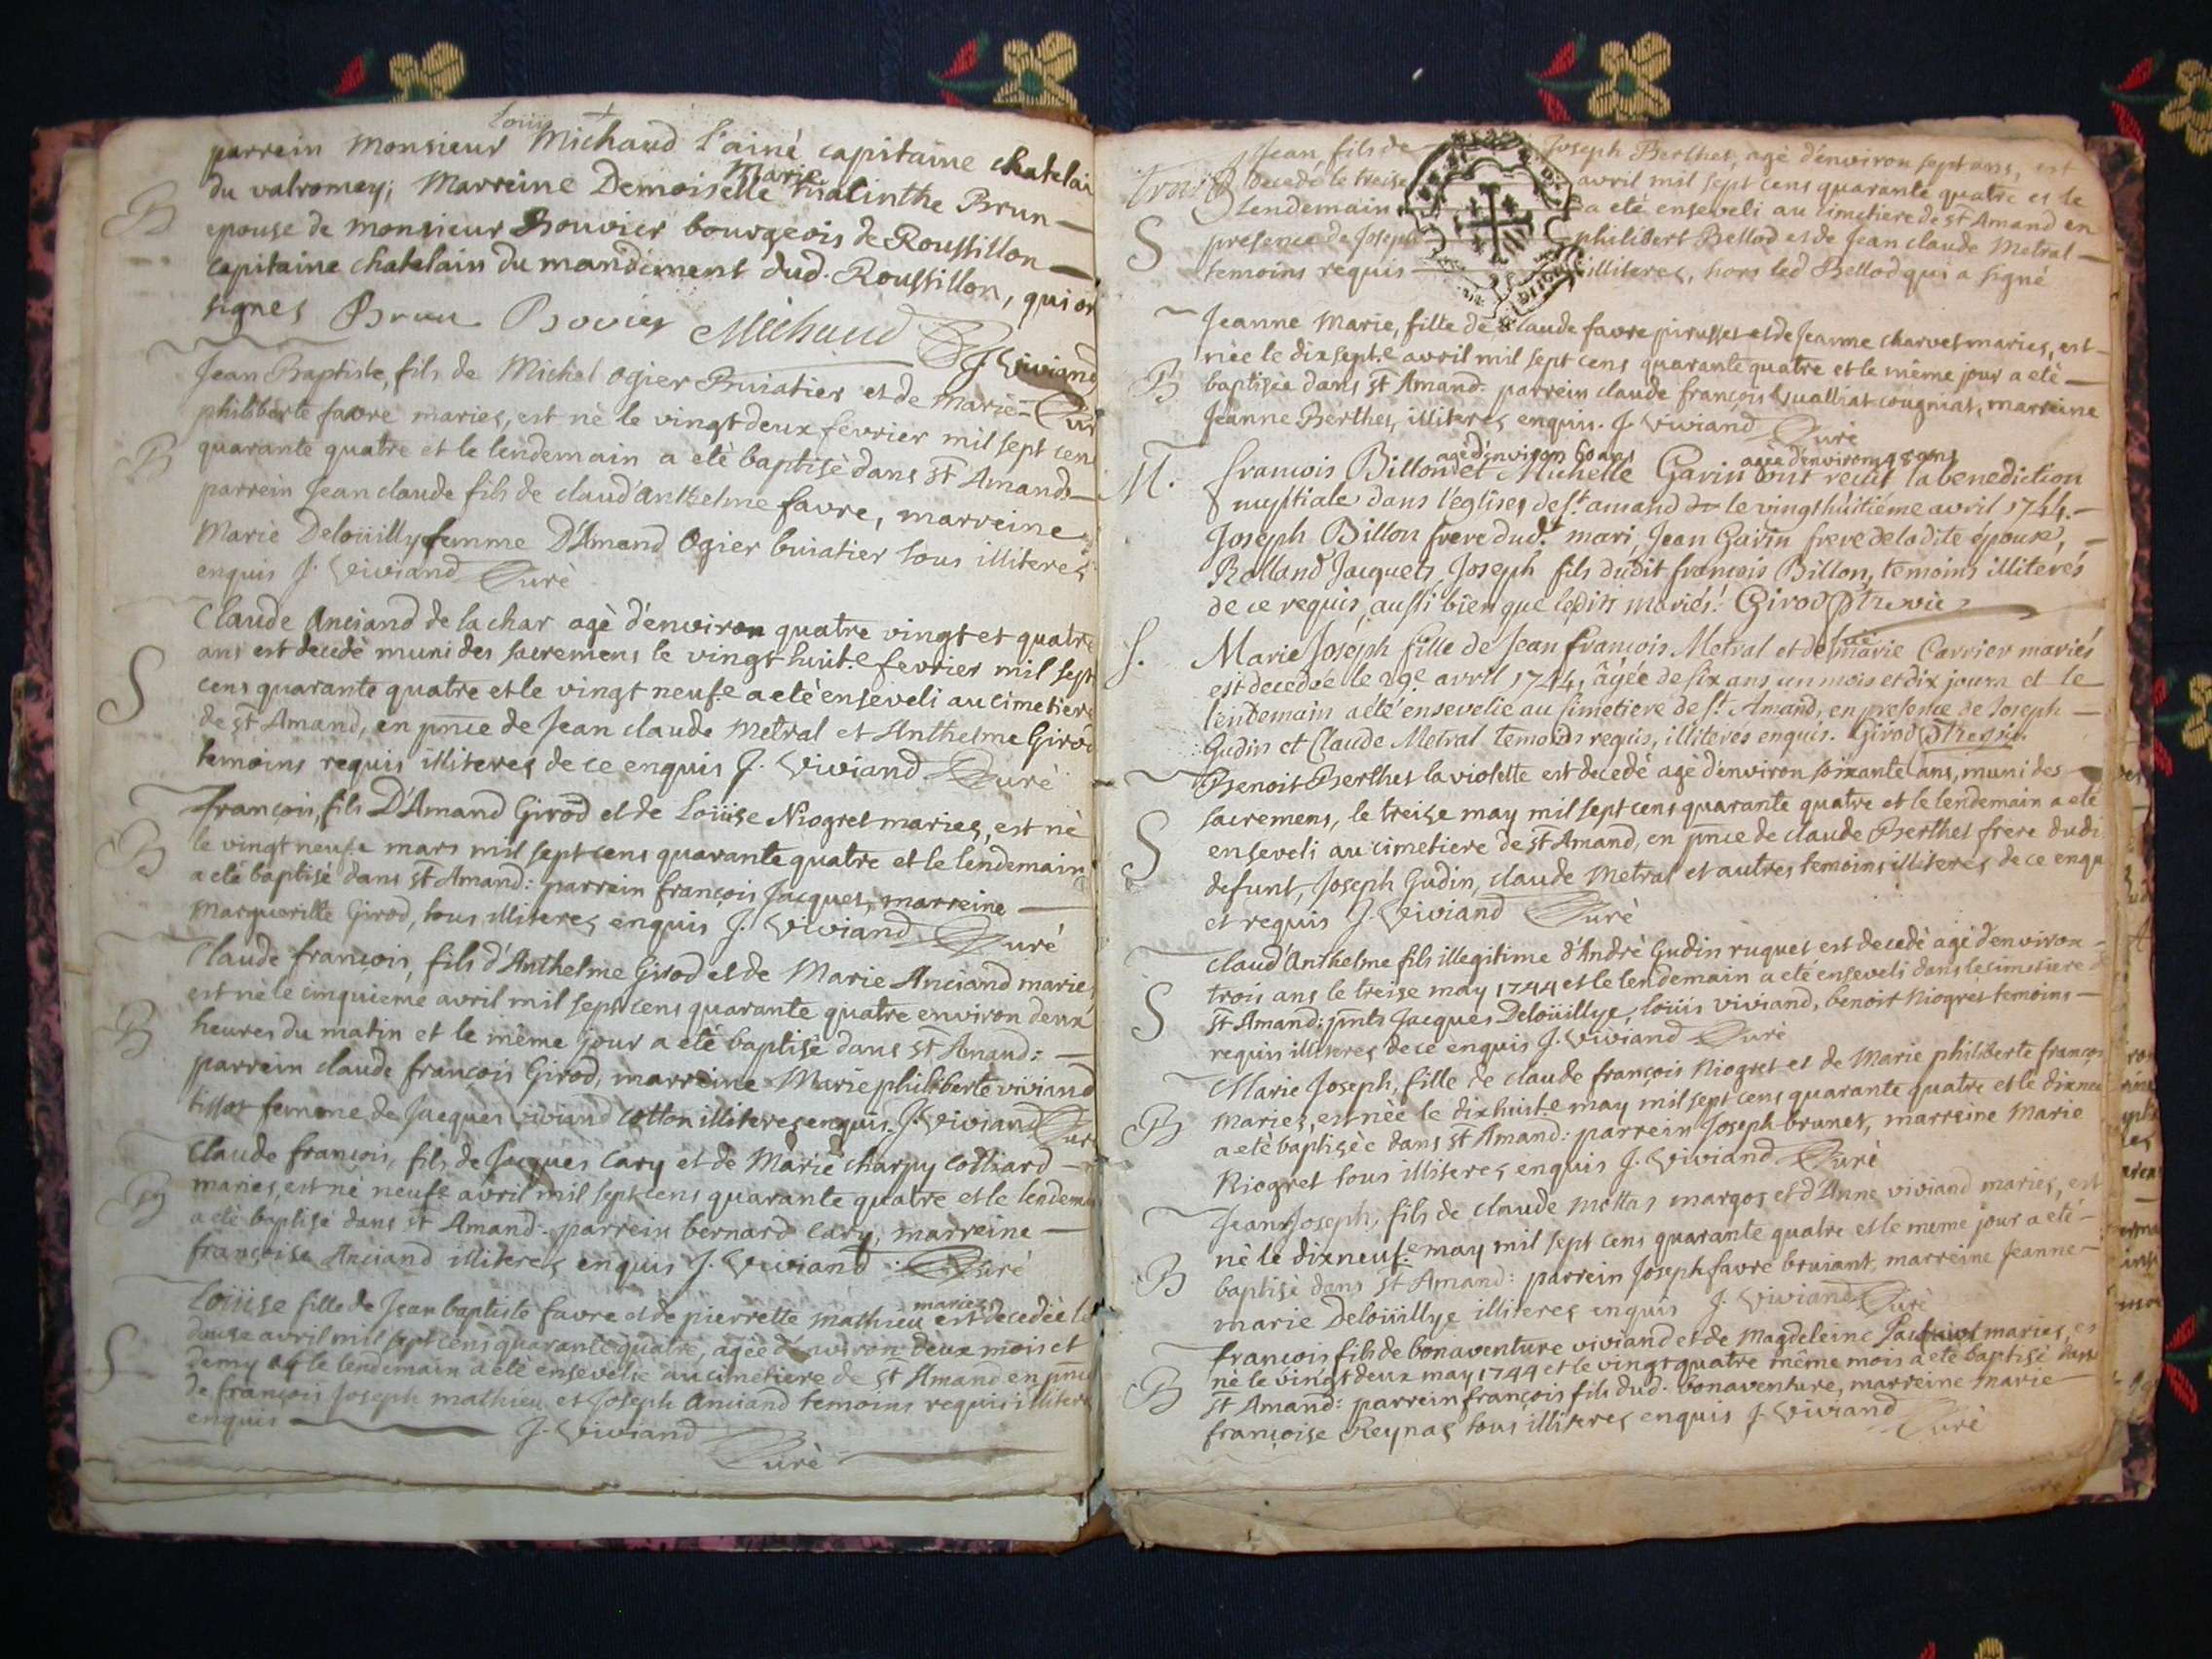 Loüis
parrein Monsieur Michaud l'ainé capitaine chatelai
Marie
du valromey; Marreine Demoiselle hiacinthe Brun
B
epouse de monsieur Bouvier bourgeois de Roussillon
capitaine chatelain du mandement dud. Roussillon, qui on
signes Brun Bovier Michaud J. Viviand
Jean Baptiste, fils de Michel Ogier Buiatier et de Marie
philiberte favre maries, est né le vingt deux fevrier mil sept cens
B
quarante quatre et le lendemain a eté baptisé dans st Amand
parrein Jean claude fils de claud'anthelme favre, marreine
Marie Deloüilly femme D'Amand Ogier buiatier tous illiteres
enquis J. Viviand Curé
Claude Anciand de la char agè d'environ quatre vingt et quatre
ans est decedè muni des sacremens le vingt huit.e fevrier mil sept
S
cens quarante quatre et le vingt neuf.e a eté enseveli au cimetiere
de st Amand, en pnce de Jean claude Metral et Anthelme Girod
temoins requis illiteres de ce enquis J. Viviand Curé
françois, fils D'Amand Girod et de Loüise Niogret maries, est né
B
le vingt neuf.e mars mil sept cens quarante quatre et le lendemain
a eté baptisé dans st Amand: parrein françois Jacquet, marreine
Marguerite Girod, tous illiteres enquis J. Viviand Curé
Claude françois, fils d'Anthelme Girod et de Marie Anciand maries
est né le cinquieme avril mil sept cens quarante quatre environ deux
B
heures du matin et le même jour a eté baptisé dans st Amand:
parrein claude françois Girod, marreine Marie philiberte viviand
tissot femme de Jacques viviand cotton illiteres enquis J. Viviand Curé
Claude françois, fils de Jacques Cary et de Marie charpy colliard
B
maries, est né neuf.e avril mil sept cens quarante quatre et le lendemain
a eté baptisé dans st Amand: parrein bernard Cary, marreine
françoise Anciand illiteres enquis J. Viviand Curé
maries
Loüise fille de Jean baptiste favre et de pierrette Mathieu est decedée le
douze avril mil sept cens quarante quatre, agée d'environ deux mois et
S
demy et le lendemain a eté ensevelie au cimetiere de st Amand en pnce
de françois Joseph mathieu et Joseph Anciand temoins requis illiteres
enquis J. Viviand
Curé
Jean, fils de Joseph Berthet, agè d'environ sept ans, est
trois decedé le treise avril mil sept cens quarante quatre et le
lendemain a eté enseveli au cimetiere de st Amand en
S
presence de Joseph philibert Bellod et de Jean claude Metral
temoins requis illiteres, hors led Bellod qui a signé
Jeanne Marie, fille de Claude favre pirusset et de Jeanne charvet maries, est
née le dix sept.e avril mil sept cens quarante quatre et le même jour a eté
B
baptisée dans st Amand: parrein claude françois cougniat, marreine
Jeanne Berthet, illiteres enquis. J. Viviand Curé
agé d'environ 60 ans agée d'environ 48 ans
M.
francois Billon et Michelle Gavin ont recus la benediction
nuptiale dans l'eglise de st. amand le vingt huitiéme avril 1744.
Joseph Billon frere dud.t mari, Jean Gavin frere de la dite épouse,
Rolland Jacquet, Joseph fils dudit françois Billon, temoins illiterés
de ce requis, aussi bien que lesdits mariés. Girod
S.
Marie Joseph fille de Jean francois Metral et de marie Carrier mariés
est decedée le 29.e avril 1744, âgée de six ans un mois et dix jours et le
lendemain a été ensevelie au simetiere de st. Amand, en presence de Joseph
Gudin et Claude Metral temoins requis, illiteres enquis. Girod
Benoit Berthet la violette est decedé agé d'environ soixante ans, muni des
sacremens, le treise may mil sept cens quarante quatre et le lendemain a eté
S
enseveli au cimetiere de st Amand, en pnce de claude Berthet frere dudi
defunt, Joseph Gudin, claude Metral et autres temoins illiteres de ce enqu
et requis J. Viviand Curé
Claud'Anthelme fils illegitime d'André Gudin ruquet est decedé agé d'environ
trois ans le treise may 1744 et le lendemain a eté enseveli dans le cimetiere
S
st Amand: pnts Jacques Deloüillye, loüis viviand, benoit Niogret temoins
requis illiteres de ce enquis J. Viviand Curé
Marie Joseph, fille de claude françois Niogret et de Marie philiberte françois
B
maries, est née le dix huit.e may mil sept cens quarante quatre et le dixneu
a eté baptisée dans st Amand: parrein Joseph brunet, marreine Marie
Niogret tous illiteres enquis J. Viviand Curé
Jean Joseph, fils de claude Mottas margos et d'Anne viviand maries, est
né le dixneuf.e may mil sept cens quarante quatre et le meme jour a eté
B
baptisé dans st Amand: parrein Joseph favre bruiant, marreine Jeanne
marie Deloüillye illiteres enquis J. Viviand Curé
françois fils de bonaventure viviand et de Magdeleine maries, es
né le vingt deux may 1744 et le vingt quatre même mois a eté baptisé dans
B
st Amand: parrein françois fils dud. bonaventure, marreine marie
françoise Reynas tous illiteres enquis J. Viviand Curé